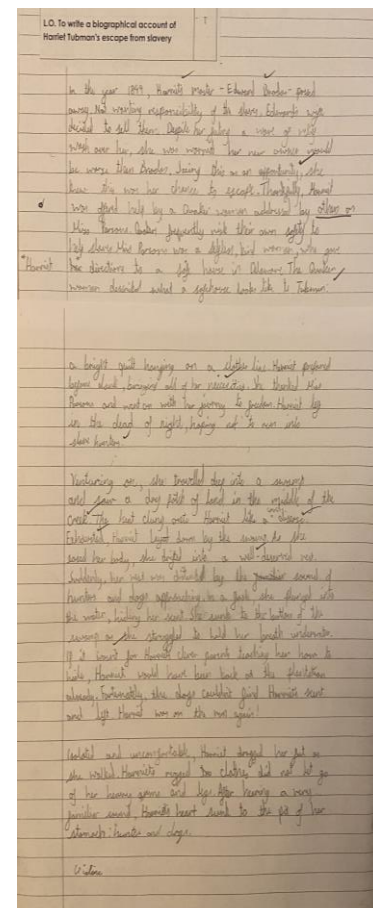 L.O. To write a biographical account of
Harriet Tubman's escape from slavery
In the year 1849, Harriet's master - Edward Brodas - passed
away. Not wanting responsibility of the slaves, Edward's wife
decided to sell them. Despite her feeling a wave of
wash over her, she was worried her new owner would
be worse than Brodas. Seeing this as an opportunity, she
knew this was her chance to escape. Thankfully, Harriet
was offered help by a Quaker woman addressed by others as
Miss Parsons. Quakers frequently risk their own safety to
help slaves. Miss Parsons was a selfless, kind woman, who gave
*Harriet
her directions to a safe house in Delaware. The Quaker
woman described what a safehouse looks like to Tubman.
a bright quilt hanging on a clothes line. Harriet prepared
before dark, bringing all of her necessities. She thanked Miss
Parsons and went on with her journey to freedom. Harriet
in the dead of night, hoping not to run into
slave hunters.
Venturing on, she travelled deep into a swamp
and saw a dry patch of land in the middle of the
creek. The heat clung onto Harriet like a disease.
Exhausted, Harriet down by the swamp. As she
her body, she drifted into a well-deserved rest.
Suddenly, her rest was disturbed by the sound of
hunters and dogs approaching. In a flash, she plunged into
the water, hiding her scent. She sunk to the bottom of the
swamp as she struggled to hold her breath underwater.
If it wasn't for Harriet's clever parents teaching her how to
hide, Harriet would have been back at the plantation
already. Fortunately, the dogs couldn't find Harriet's scent
and left. Harriet was on the run again!
Isolated and uncomfortable, Harriet dragged her feet as
she walked. Harriet's ragged clothes did not let go
of her arms and legs. After hearing a very
familiar sound, Harriet's heart sunk to the pit of her
stomach: hunters and dogs.